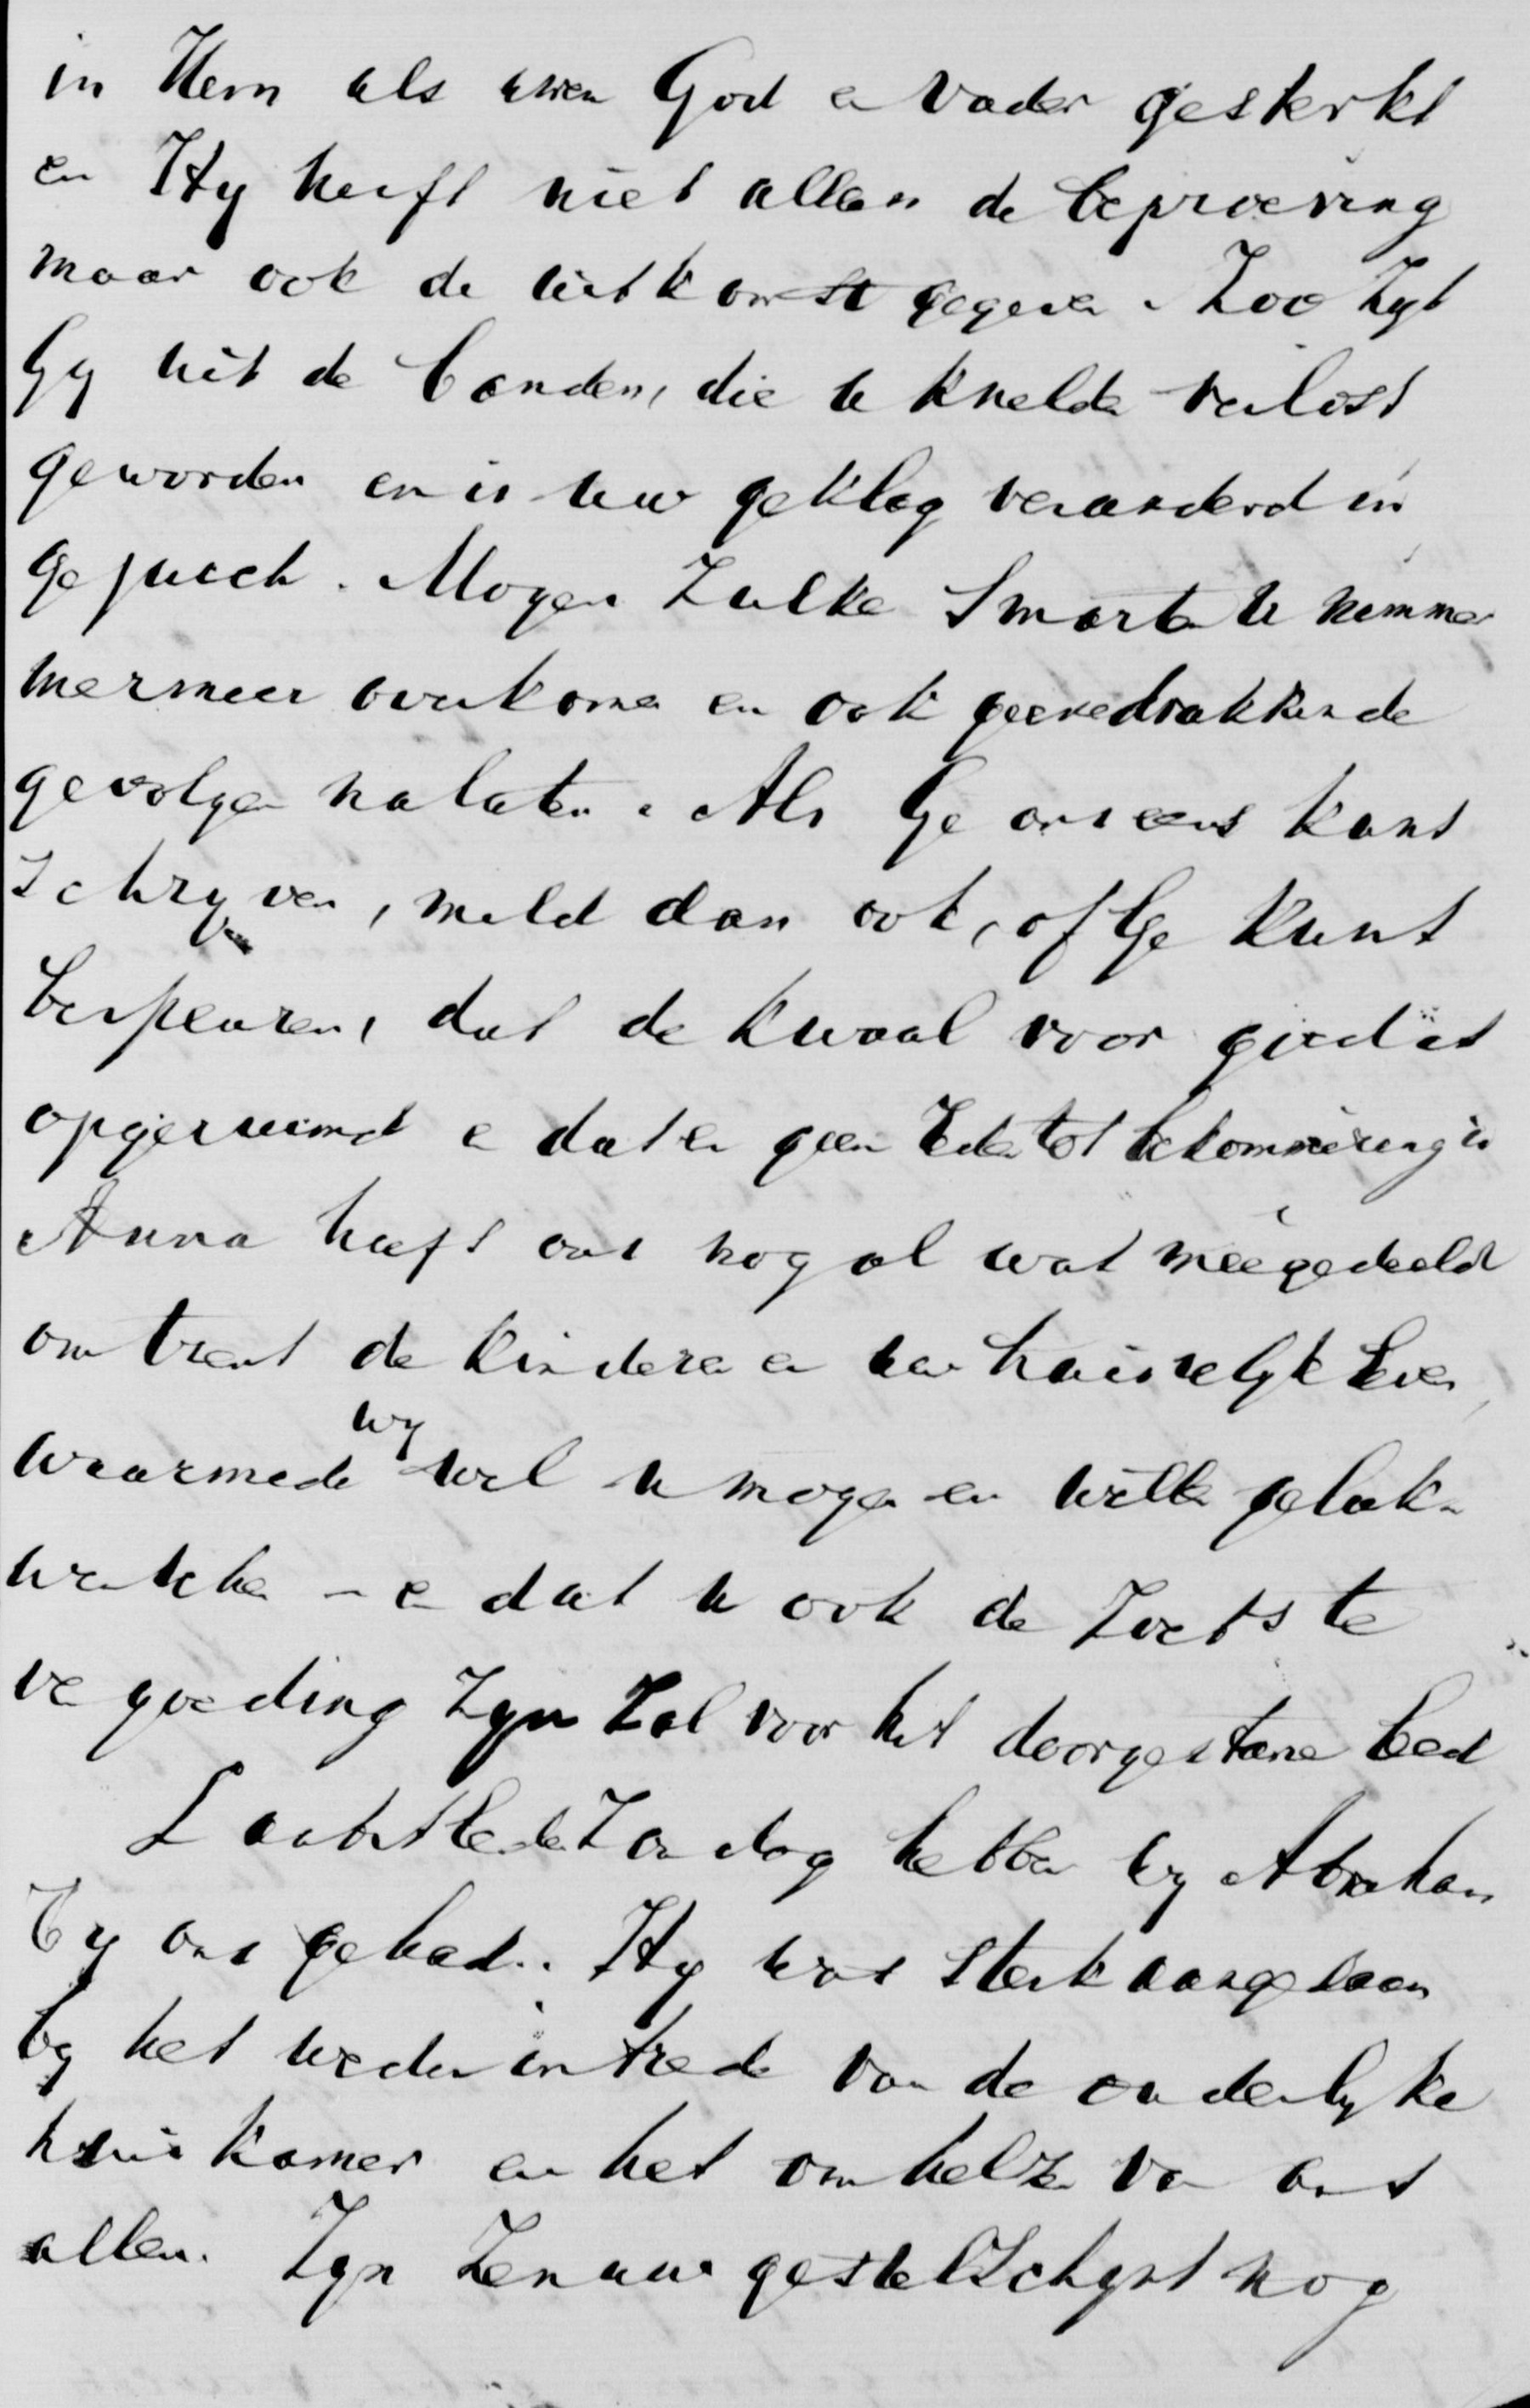 in Hem als uwen God en Vader gesterkt
en Hy heeft niet alleen de beproeving
maar ook de uitkomst gegeven. Zoo Zyt
Gy uit de banden, die u knelden verlost
geworden en is uw geklag veranderd in
gejuich. Mogen Zulke Smarten U nimmer
mermeer overkomen en ook geene drukkende
gevolgen nalaten. Als Ge ons eens kunt
Schryven, meld dan ook, of Ge kunt
bespeuren, dat de kwaal voor goed is
opgeruimd en dat er geen Reden tot bekommering is
Anna heeft ons nog al wat meêgedeeld
omtrent de kinderen en uw huisselyk leven,
waarmede wy wel u mogen en willen geluk-
wenschen - en dat u ook de Zoetste
vergoeding Zyn Zal voor het doorgestane leed
Laatstleden Zondag hebben wy Abraham
by ons gehad. Hy was Sterk aangedaan
by het weder intreden van de ouderlyke
huiskamer en het omhelzen van ons
allen. Zyn Zenuwgestel Schynt nog